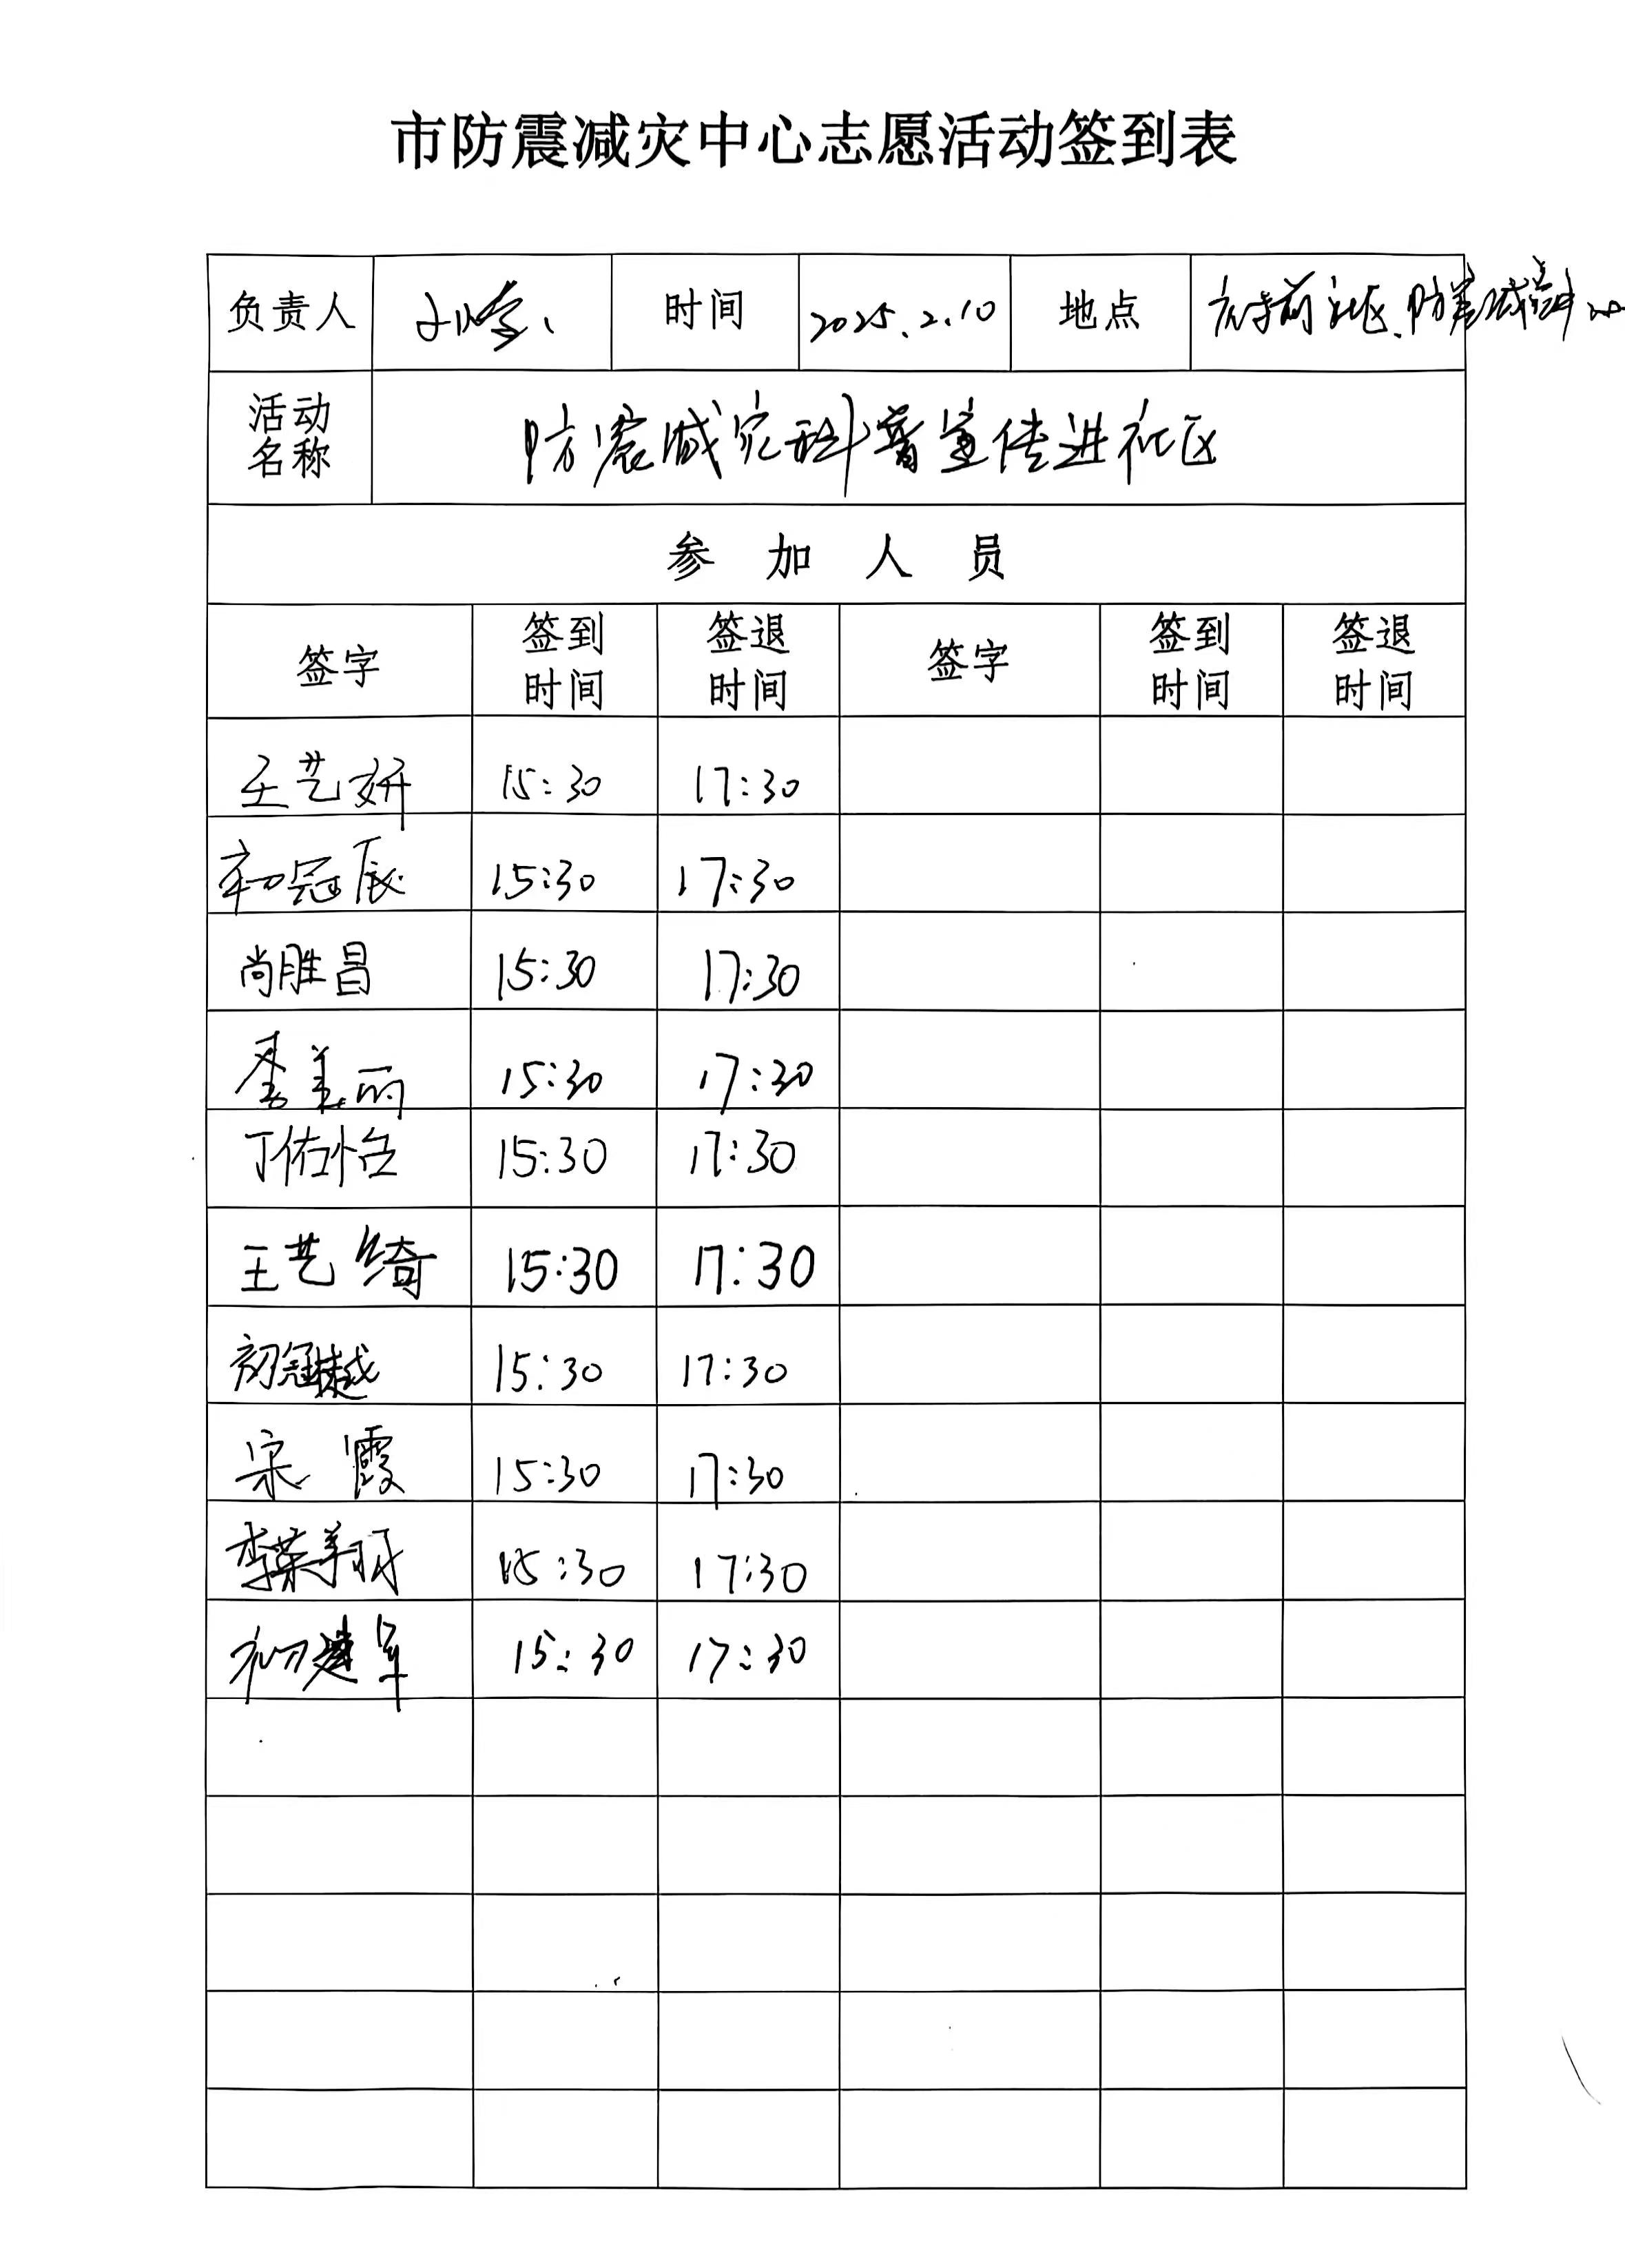 市防震减灾中心志愿活动签到表
负责人 时间 2025.2.10 地点 前社区、防震减灾中心
活动名称 防震减灾科普宣传进社区
参加人员
签字 签到时间 签退时间 签字 签到时间 签退时间
王艺妍 15:30 17:30
初冠辰 15:30 17:30
尚胜昌 15:30 17:30
美丽 15:30 17:30
丁佑怡 15:30 17:30
王艺绮 15:30 17:30
初冠越 15:30 17:30
宋霞 15:30 17:30
李荣 15:30 17:30
初建军 15:30 17:30